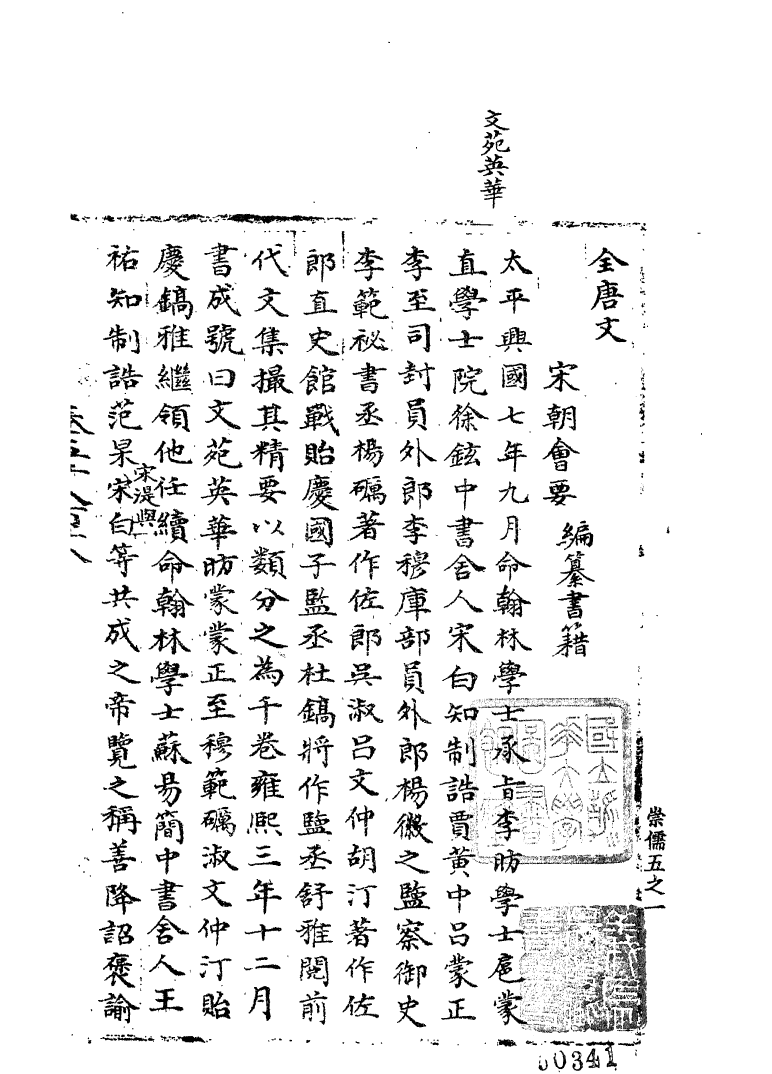 文苑英華
全唐文
宋朝會要 編纂書籍
太平興國七年九月命翰林學士承旨李昉學士扈蒙
直學士院徐鉉中書舍人宋白知制誥賈黃中呂蒙正
李至司封員外郎李穆庫部員外郎楊徽之監察御史
李範祕書丞楊礪著作佐郎吳淑呂文仲胡汀著作佐
郎直史館戰貽慶國子監丞杜鎬將作監丞舒雅閱前
代文集撮其精要以類分之為千卷雍熙三年十二月
書成號曰文苑英華昉蒙蒙正至穆範礪淑文仲汀貽
慶鎬雅繼領他任續命翰林學士蘇易簡中書舍人王
宋湜與
祐知制誥范杲宋白等共成之帝覽之稱善降詔褒諭
崇儒五之一
00341